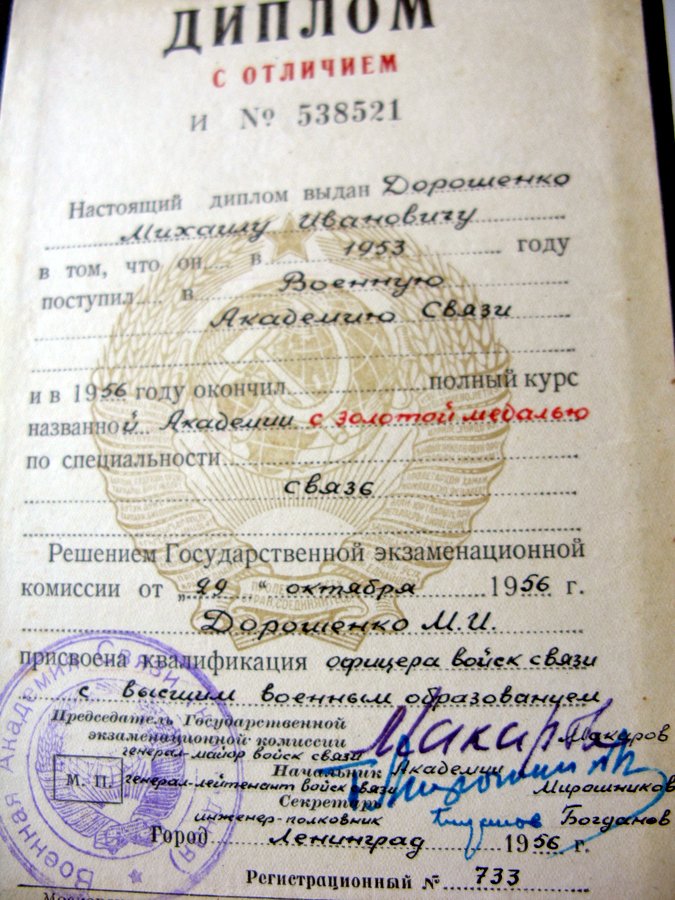 ДИПЛОМ
С ОТЛИЧИЕМ
И № 538521
Настоящий диплом выдан Дорошенко
Михаилу Ивановичу
в том, что он в 1953 году
поступил в Военную
Академию Связи
и в 1956 году окончил полный курс
названной Академии с золотой медалью
по специальности
связь
Решением Государственной экзаменационной
комиссии от „22“ октября 1956 г.
Дорошенко М.И.
присвоена квалификация офицера войск связи
с высшим военным образованием
Председатель Государственной
экзаменационной комиссии Макаров Макаров
генерал-майор войск связи
Начальник Академии
М. П. генерал-лейтенант войск связи Мирошников
Секретарь
инженер-полковник Богданов
Город Ленинград 1956 г.
Регистрационный № 733
Военная Академия Связи